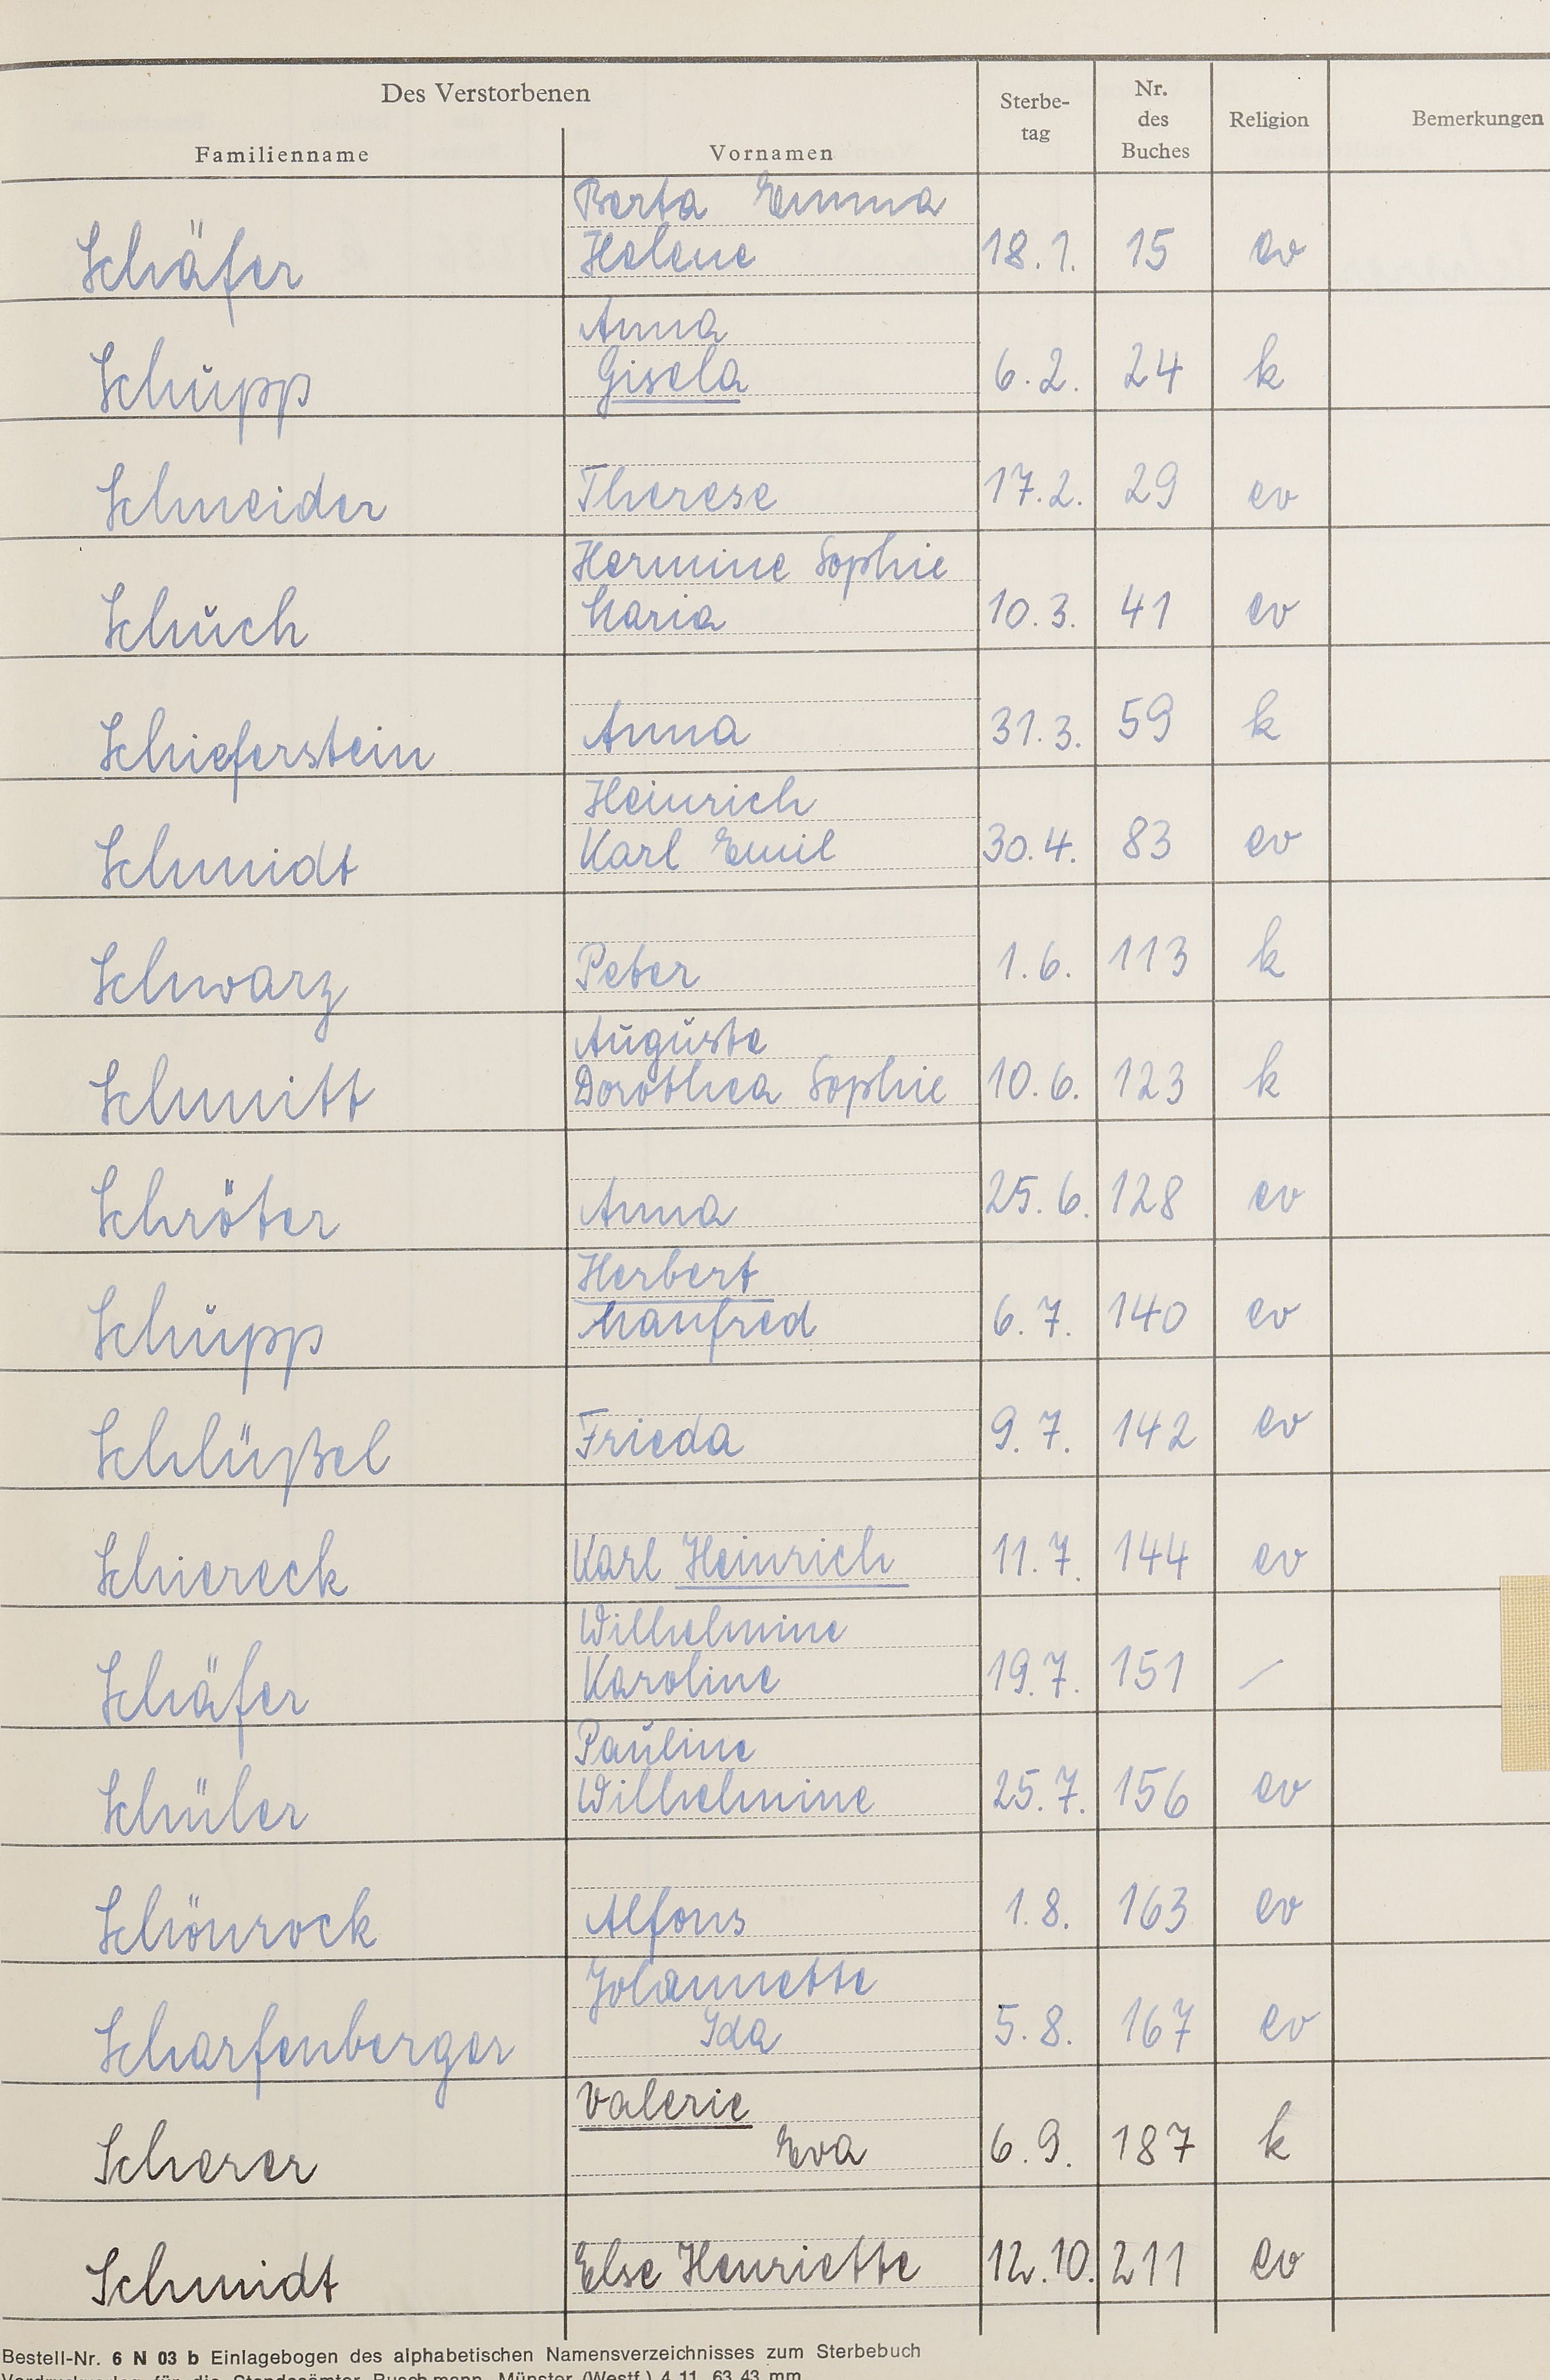 Des Verstorbenen
Familienname Vornamen Sterbe-tag Nr. des Buches Religion Bemerkungen
Berta Emma
Schäfer Helene 18.1. 15 ev
Anna
Schupp Gisela 6.2. 24 k
Schneider Therese 17.2. 29 ev
Hermine Sophie
Schuch Maria 10.3. 41 ev
Schieferstein Anna 31.3. 59 k
Heinrich
Schmidt Karl Emil 30.4. 83 ev
Schwarz Peter 1.6. 113 k
Auguste
Schmitt Dorothea Sophie 10.6. 123 k
Schröter Anna 25.6. 128 ev
Herbert
Schupp Manfred 6.7. 140 ev
Schlüßel Frieda 9.7. 142 ev
Schiereck Karl Heinrich 11.7. 144 ev
Wilhelmine
Schäfer Karoline 19.7. 151 /
Pauline
Schüler Wilhelmine 25.7. 156 ev
Schönrock Alfons 1.8. 163 ev
Johannette
Scharfenberger Ida 5.8. 167 ev
Valerie
Scherer Eva 6.9. 187 k
Schmidt Else Henriette 12.10. 211 ev
Bestell-Nr. 6 N 03 b Einlagebogen des alphabetischen Namensverzeichnisses zum Sterbebuch
für die Standesämter Münster (Westf.) 4 11 63 43 mm